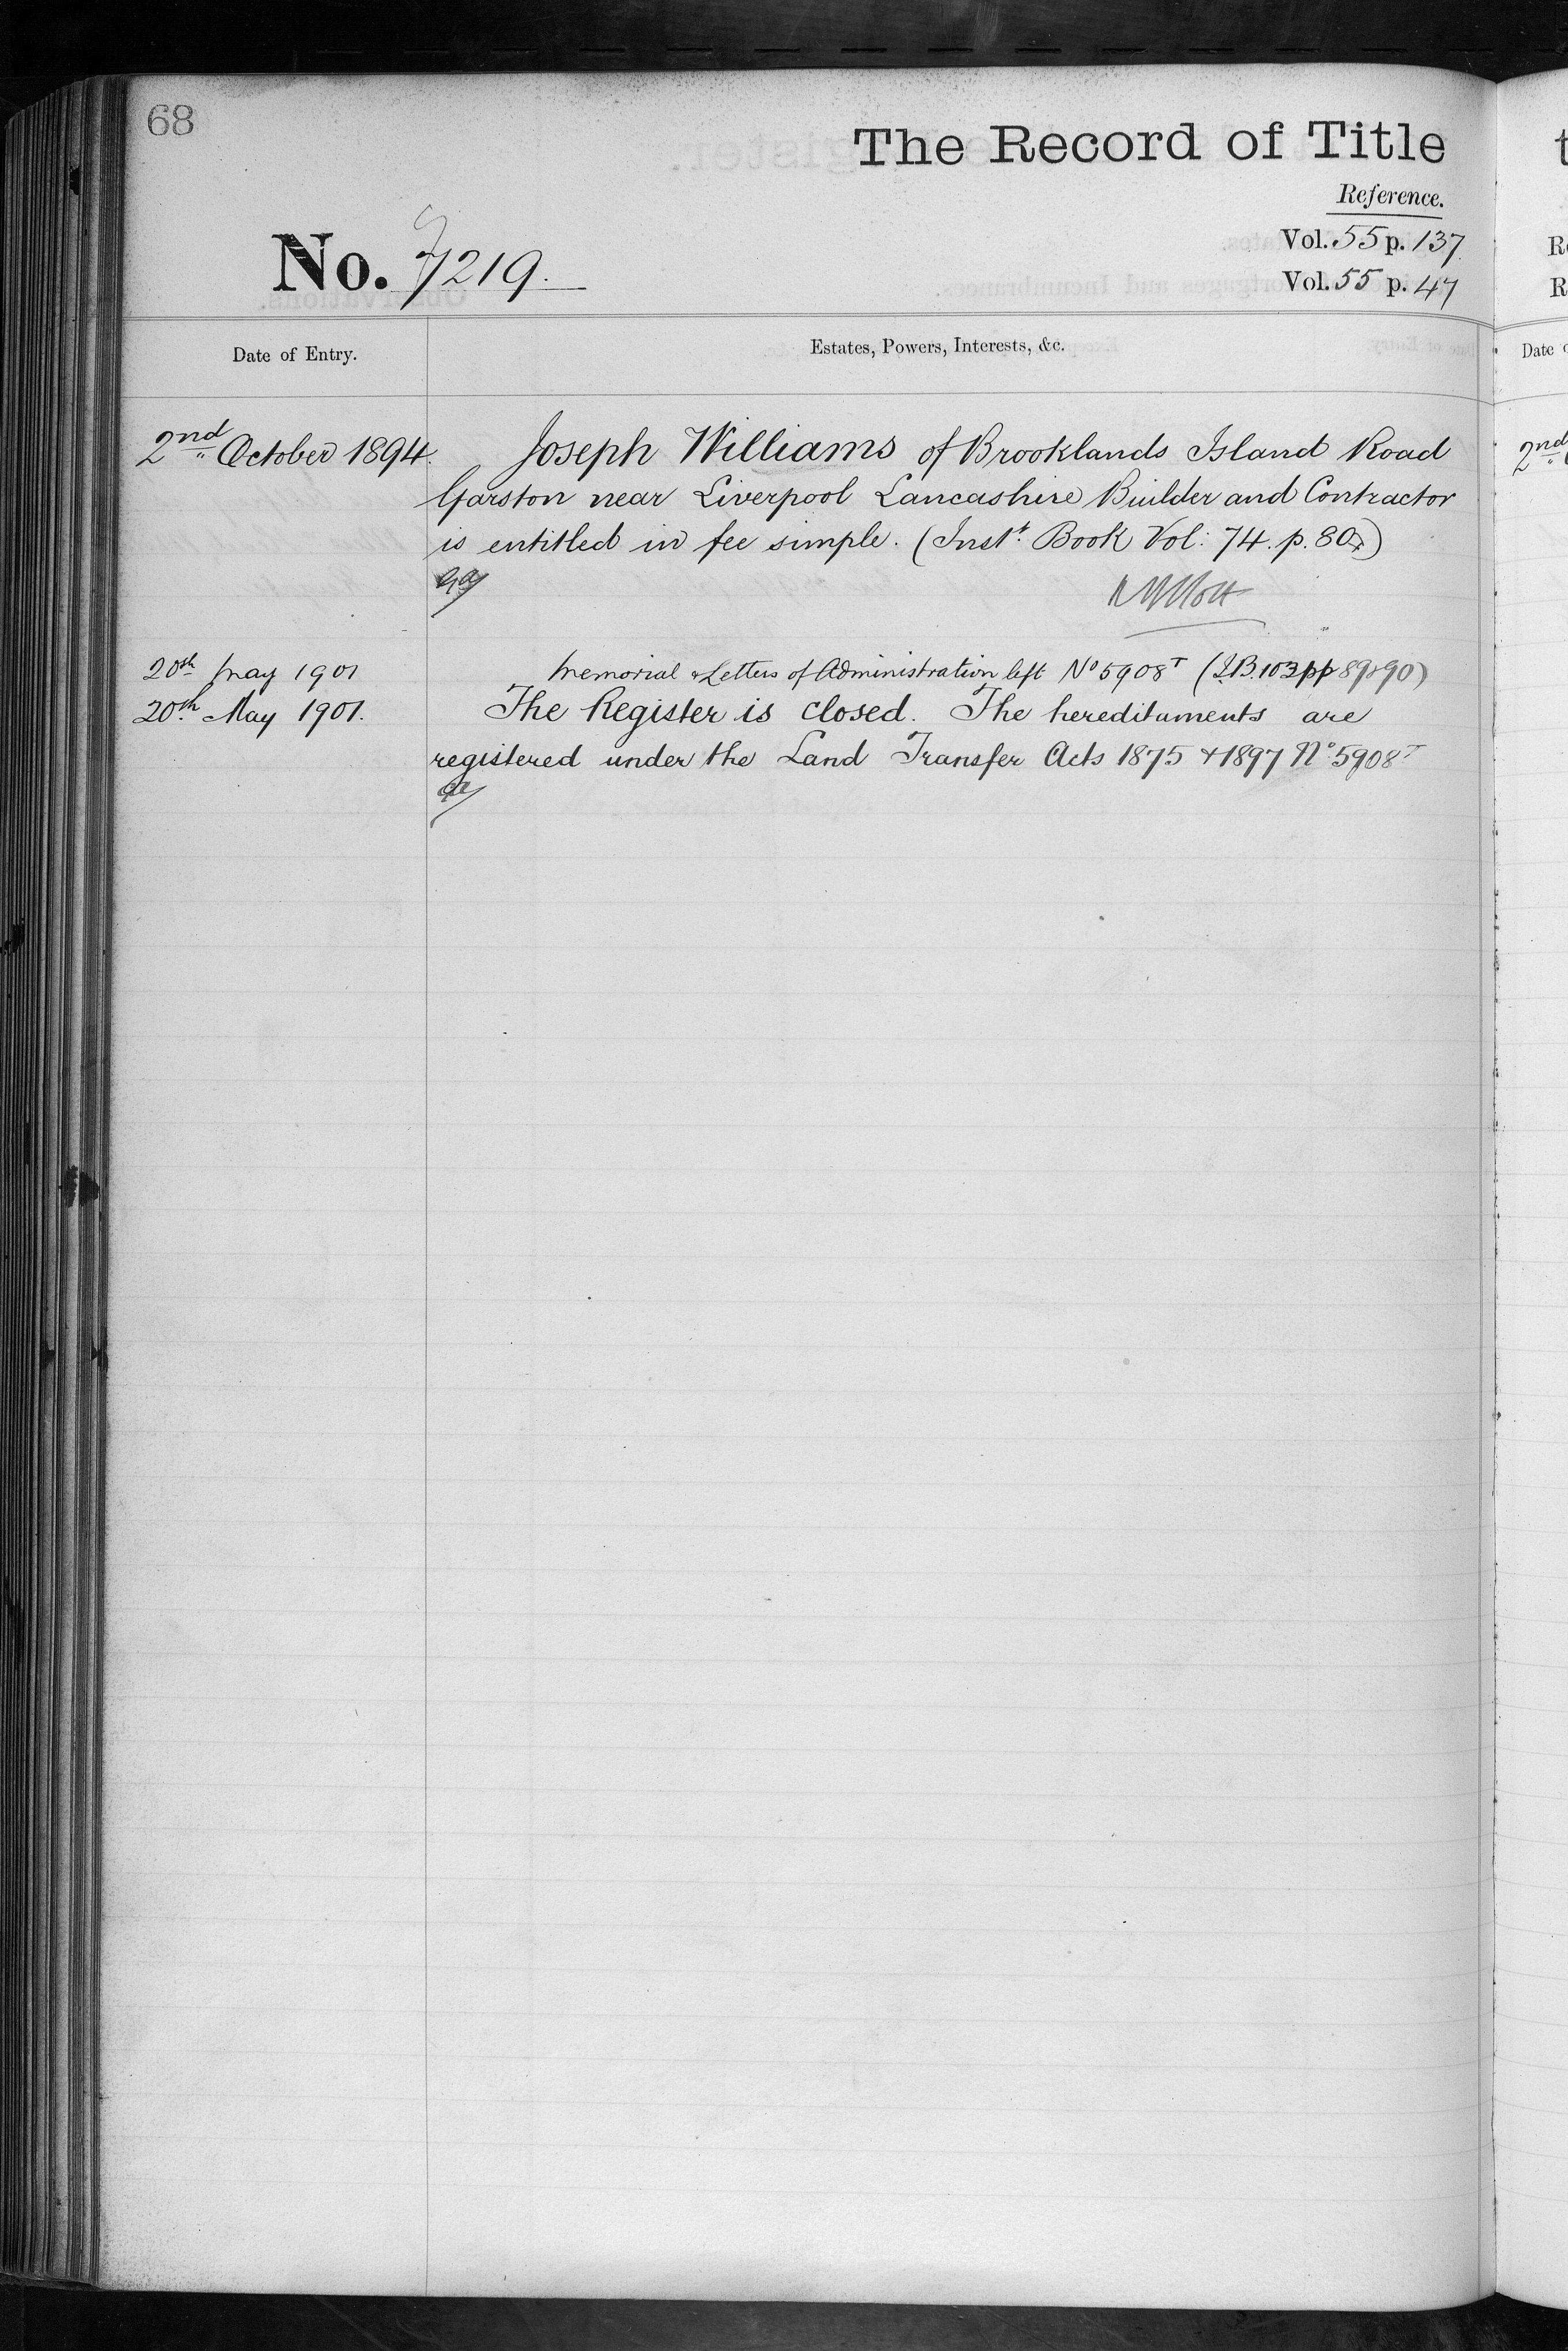 68
The Record of Title
Reference.
No. 7219.
Vol. 55 p. 137
Vol. 55 p. 47
Date of Entry.
Estates, Powers, Interests, &c.
2nd October 1894. Joseph Williams of Brooklands Island Road
Garston near Liverpool Lancashire Builder and Contractor
is entitled in fee simple. (Inst. Book Vol: 74. p. 80)
20th May 1901 Memorial & Letters of Administration left No 5908T (I.B. 103 pp 89 & 90)
20th May 1901. The Register is closed. The hereditaments are
registered under the Land Transfer Acts 1875 & 1897 No 5908T
Date
2nd